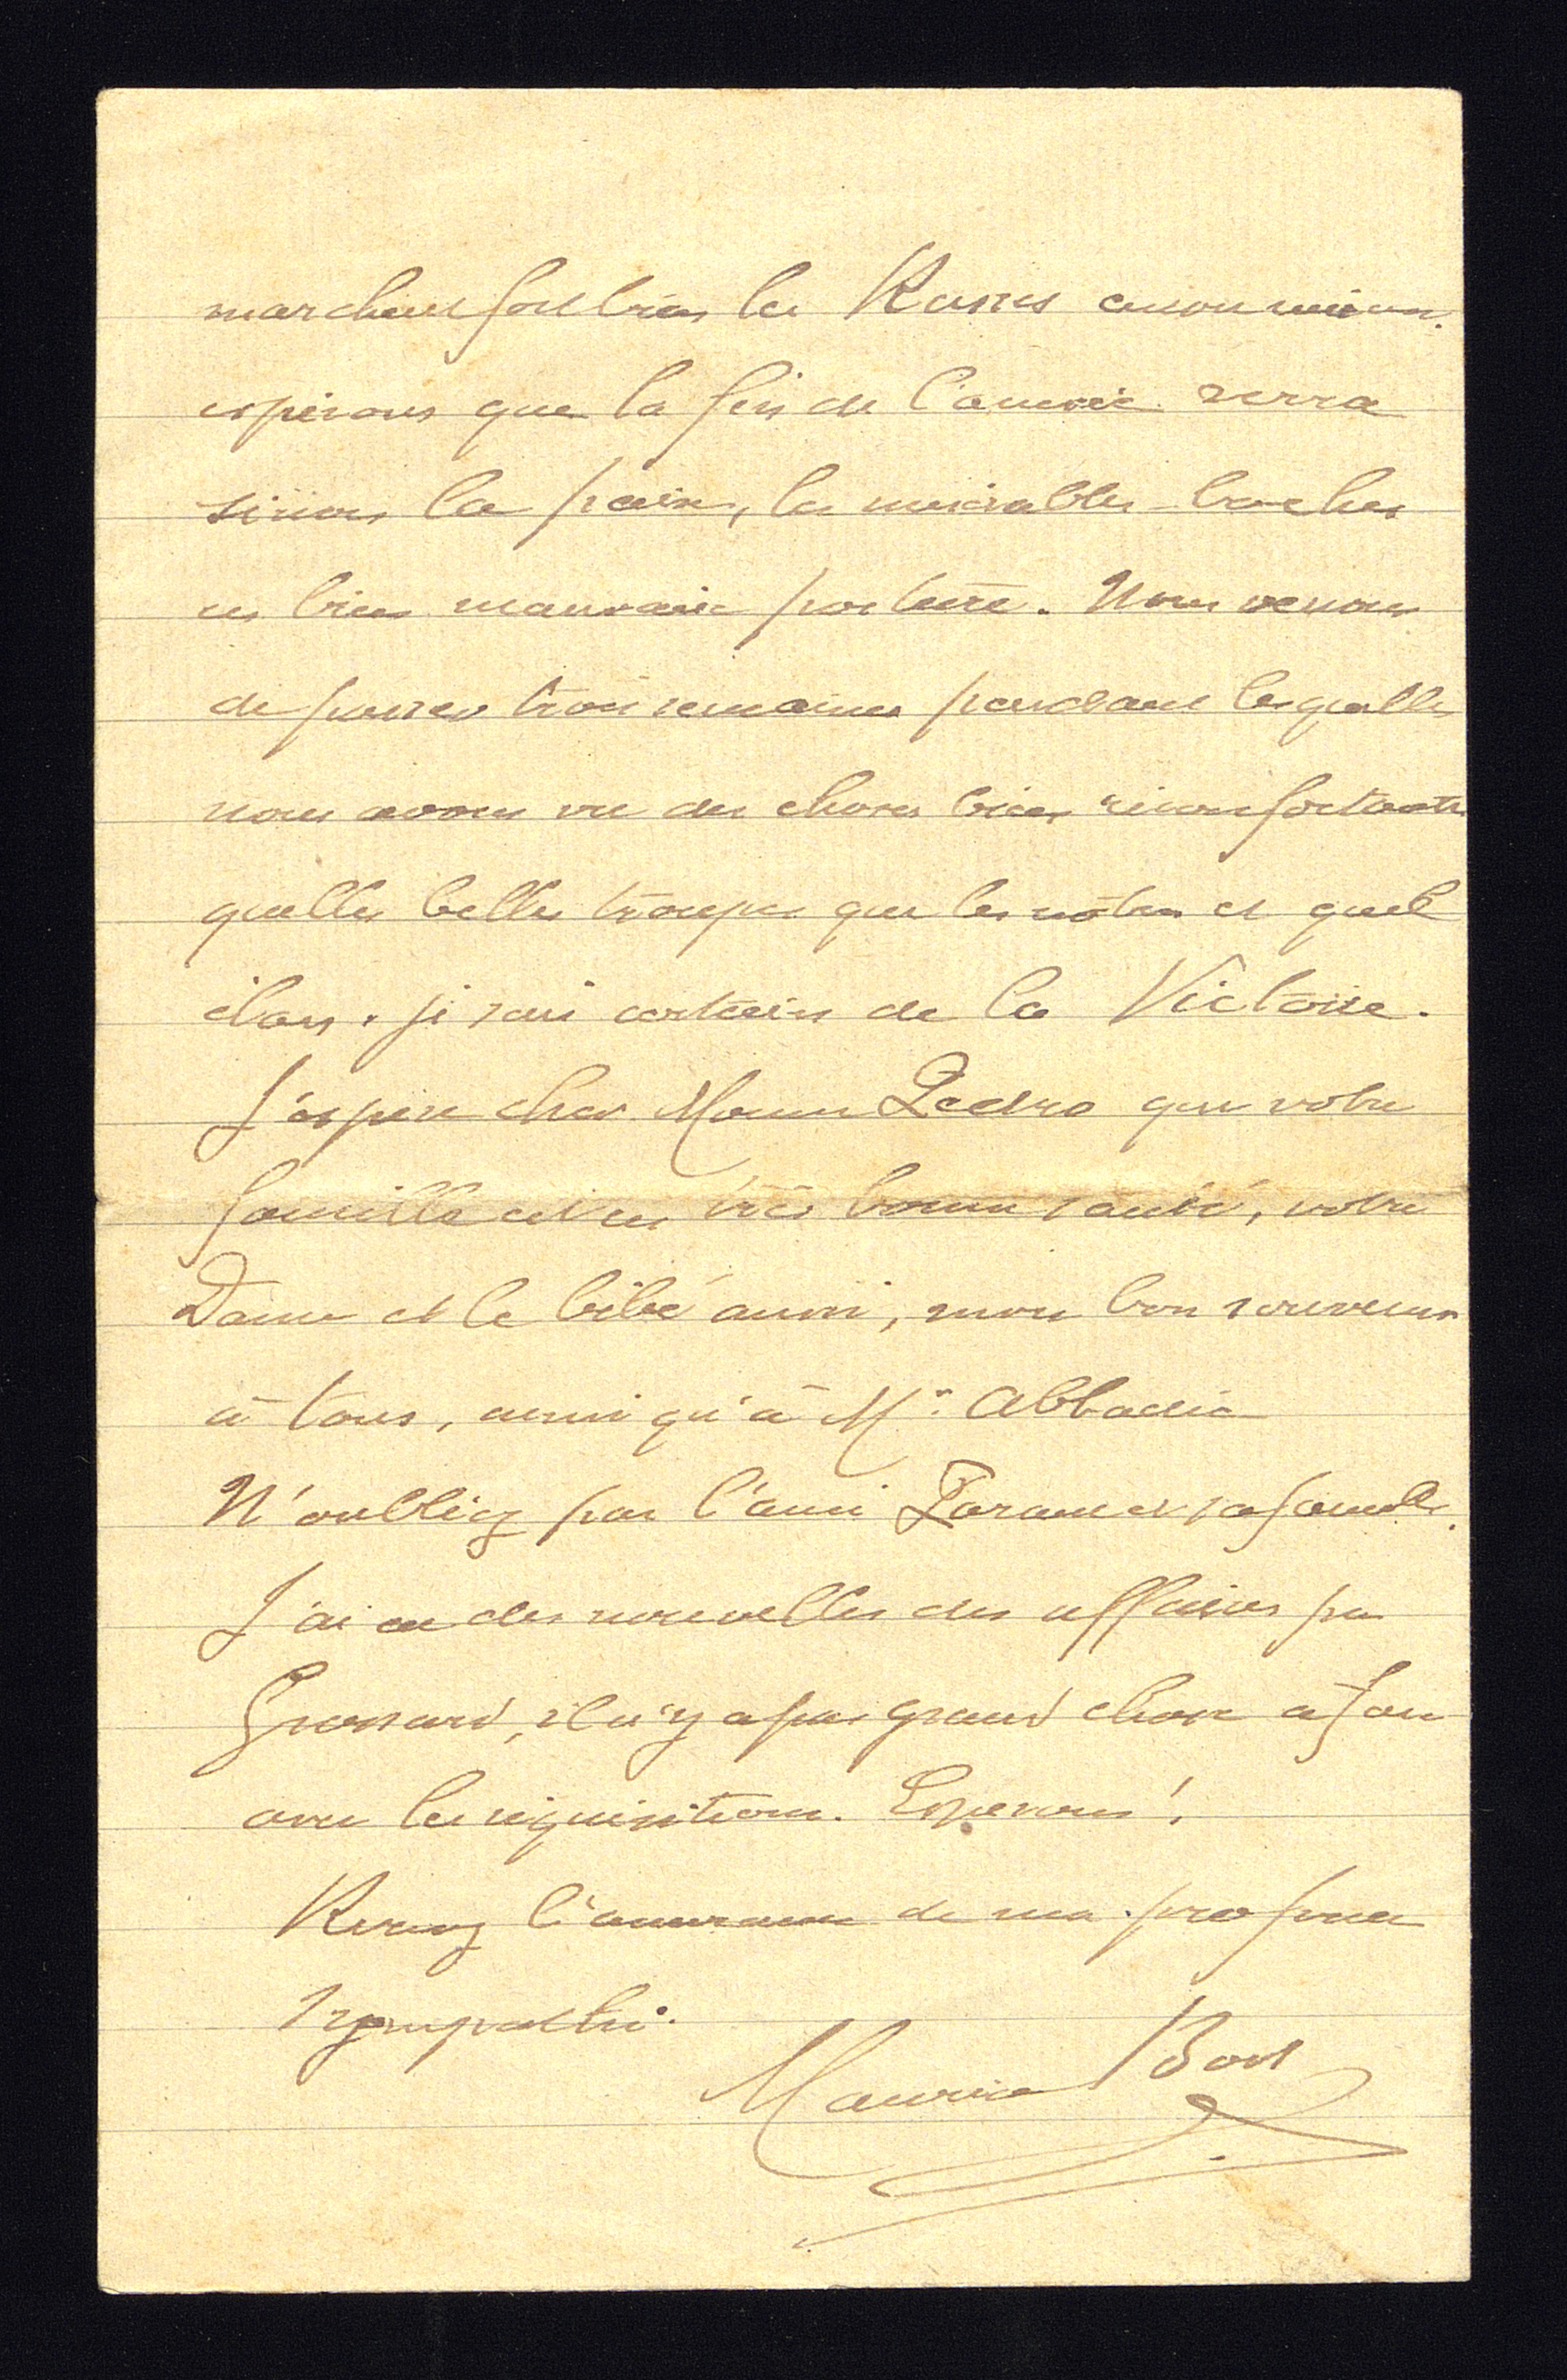 marchent fort bien les Russes encore mieux.
espérons que la fin de l'année verra
sinon la paix, les misérables boches
en bien mauvaise posture. Nous venons
de passer trois semaines pendant lesquelles
nous avons vu des choses bien réconfortantes
quelles belles troupes que les nôtres et quel
élan. je suis certain de la Victoire.
J'espère cher Monsieur Pedro que votre
famille est en très bonne santé, votre
Dame et le bébé aussi, mon bon souvenir
à tous, ainsi qu'à Mr. Abbadie
N'oubliez pas l'ami et sa famille.
J'ai eu des nouvelles des affaires par
Grossard, il n'y a pas grand chose à faire
avec les réquisitions. Espérons!
Recevez l'assurance de ma profonde
sympathie.
Maurice